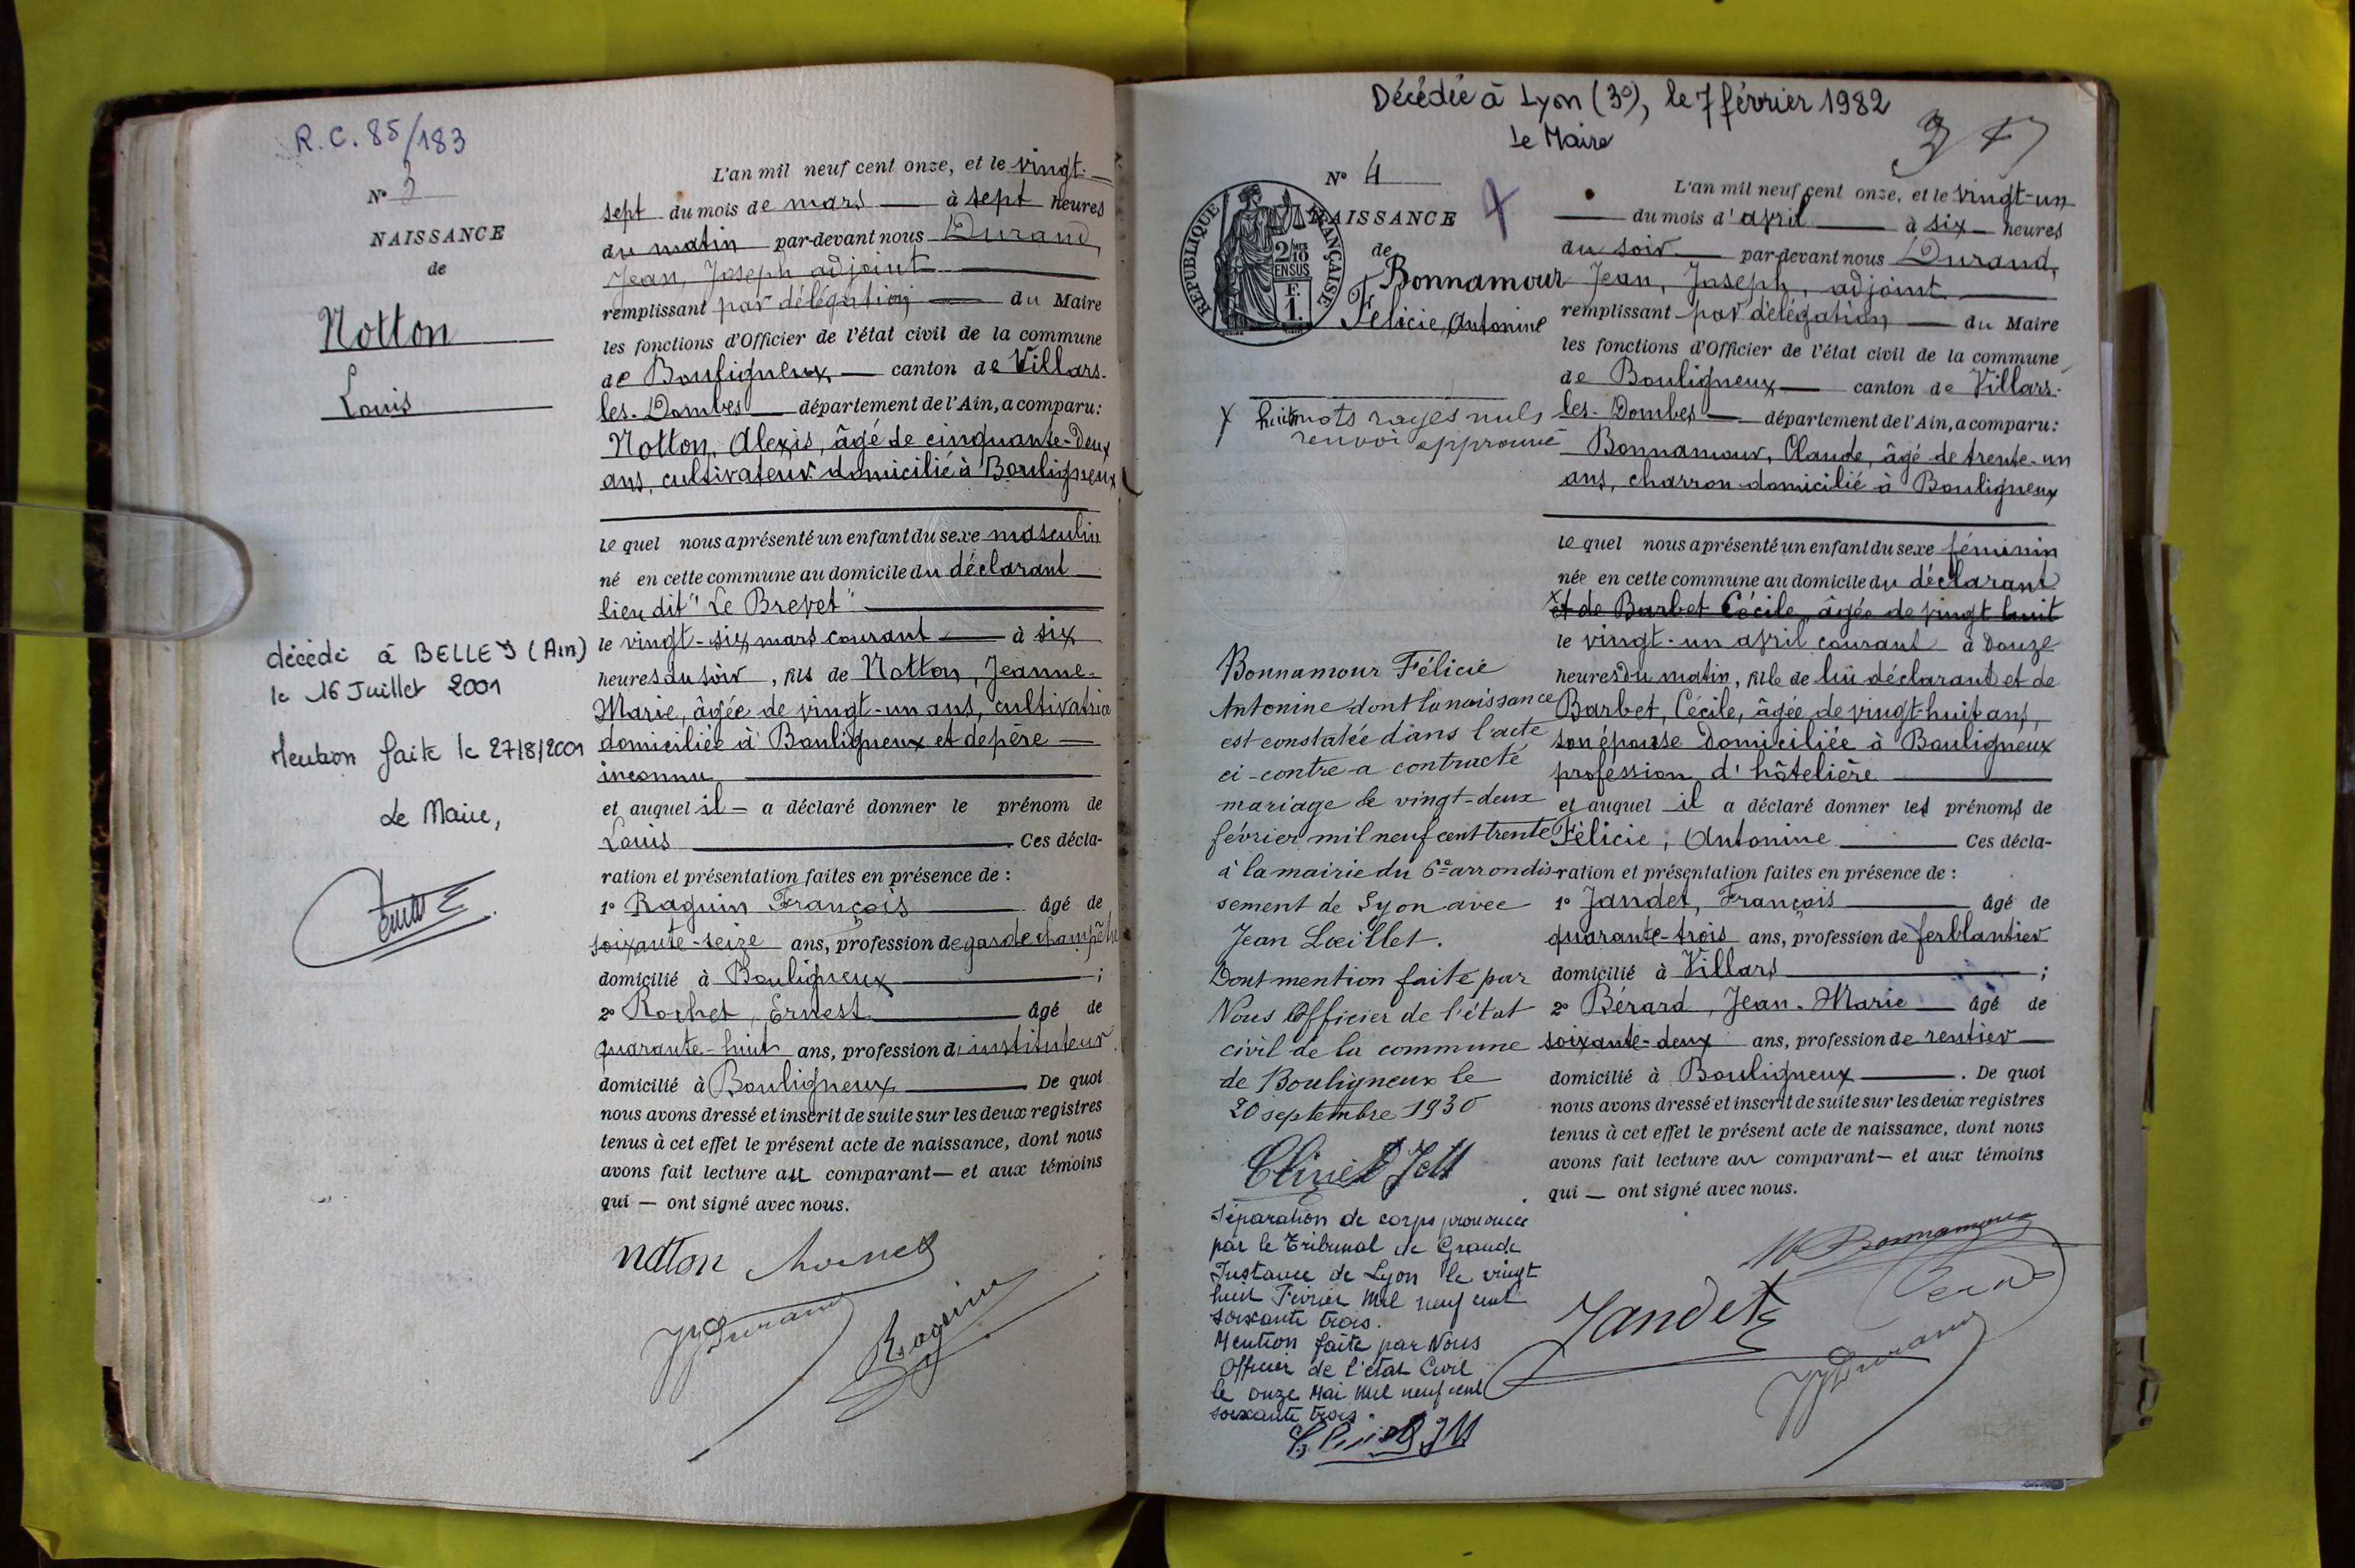 R.C. 85/183
N° 3
NAISSANCE
de
Notton
Louis
décédé à BELLEY (Ain)
le 16 Juillet 2001
Mention faite le 27/8/2001
Le Maire,
L'an mil neuf cent onze, et le vingt-
sept du mois de mars à sept heures
du matin par-devant nous Durand,
Jean, Joseph adjoint
remplissant par délégation du Maire
les fonctions d'Officier de l'état civil de la commune
de Bouligneux canton de Villars-
les-Dombes département de l'Ain, a comparu:
Notton, Alexis, âgé de cinquante-deux
ans, cultivateur domicilié à Bouligneux
lequel nous a présenté un enfant du sexe masculin
né en cette commune au domicile du déclarant
lieu dit "Le Brevet"
le vingt-six mars courant à six
heures du soir, fils de Notton, Jeanne-
Marie, âgée de vingt-un ans, cultivatrice
domiciliée à Bouligneux et de père
inconnu
et auquel il a déclaré donner le prénom de
Louis Ces décla-
ration et présentation faites en présence de :
1° Raguin François âgé de
soixante-seize ans, profession de garde champêtre
domicilié à Bouligneux ;
2° Rochet, Ernest âgé de
quarante-huit ans, profession d'instituteur
domicilié à Bouligneux De quoi
nous avons dressé et inscrit de suite sur les deux registres
tenus à cet effet le présent acte de naissance, dont nous
avons fait lecture au comparant — et aux témoins
qui — ont signé avec nous.
notton
JJ Durand
Raguin
Décédée à Lyon (3e), le 7 février 1982
Le Maire
3
N° 4
NAISSANCE
de
Bonnamour
Félicie, Antonine
RÉPUBLIQUE FRANÇAISE
2/10 MES
EN SUS
F.
1.
X huit mots rayés nuls
renvoi approuvé
Bonnamour Félicie
Antonine dont la naissance
est constatée dans l'acte
ci-contre a contracté
mariage le vingt-deux
février mil neuf cent trente
à la mairie du 6e arrondis-
sement de Lyon avec
Jean Lœillet.
Dont mention faite par
Nous Officier de l'état
civil de la commune
de Bouligneux le
20 septembre 1930
Séparation de corps prononcée
par le Tribunal de Grande
Instance de Lyon le vingt
huit Février mil neuf cent
soixante trois.
Mention faite par Nous
Officier de l'état Civil
le onze Mai mil neuf cent
soixante trois.
L'an mil neuf cent onze, et le vingt-un
du mois d'avril à six heures
du soir par-devant nous Durand,
Jean, Joseph, adjoint
remplissant par délégation du Maire
les fonctions d'Officier de l'état civil de la commune
de Bouligneux canton de Villars-
les-Dombes département de l'Ain, a comparu:
Bonnamour, Claude, âgé de trente-un
ans, charron domicilié à Bouligneux
lequel nous a présenté un enfant du sexe féminin
née en cette commune au domicile du déclarant
X et de Barbet Cécile, âgée de vingt huit
le vingt-un avril courant à douze
heures du matin, fille de lui déclarant et de
Barbet, Cécile, âgée de vingt-huit ans,
son épouse domiciliée à Bouligneux
profession d'hôtelière
et auquel il a déclaré donner les prénoms de
Félicie, Antonine Ces décla-
ration et présentation faites en présence de :
1° Jandet, François âgé de
quarante-trois ans, profession de ferblantier
domicilié à Villars ;
2° Bérard, Jean-Marie âgé de
soixante-deux ans, profession de rentier
domicilié à Bouligneux. De quoi
nous avons dressé et inscrit de suite sur les deux registres
tenus à cet effet le présent acte de naissance, dont nous
avons fait lecture au comparant — et aux témoins
qui — ont signé avec nous.
Bonnamour
Jandet
JJ Durand